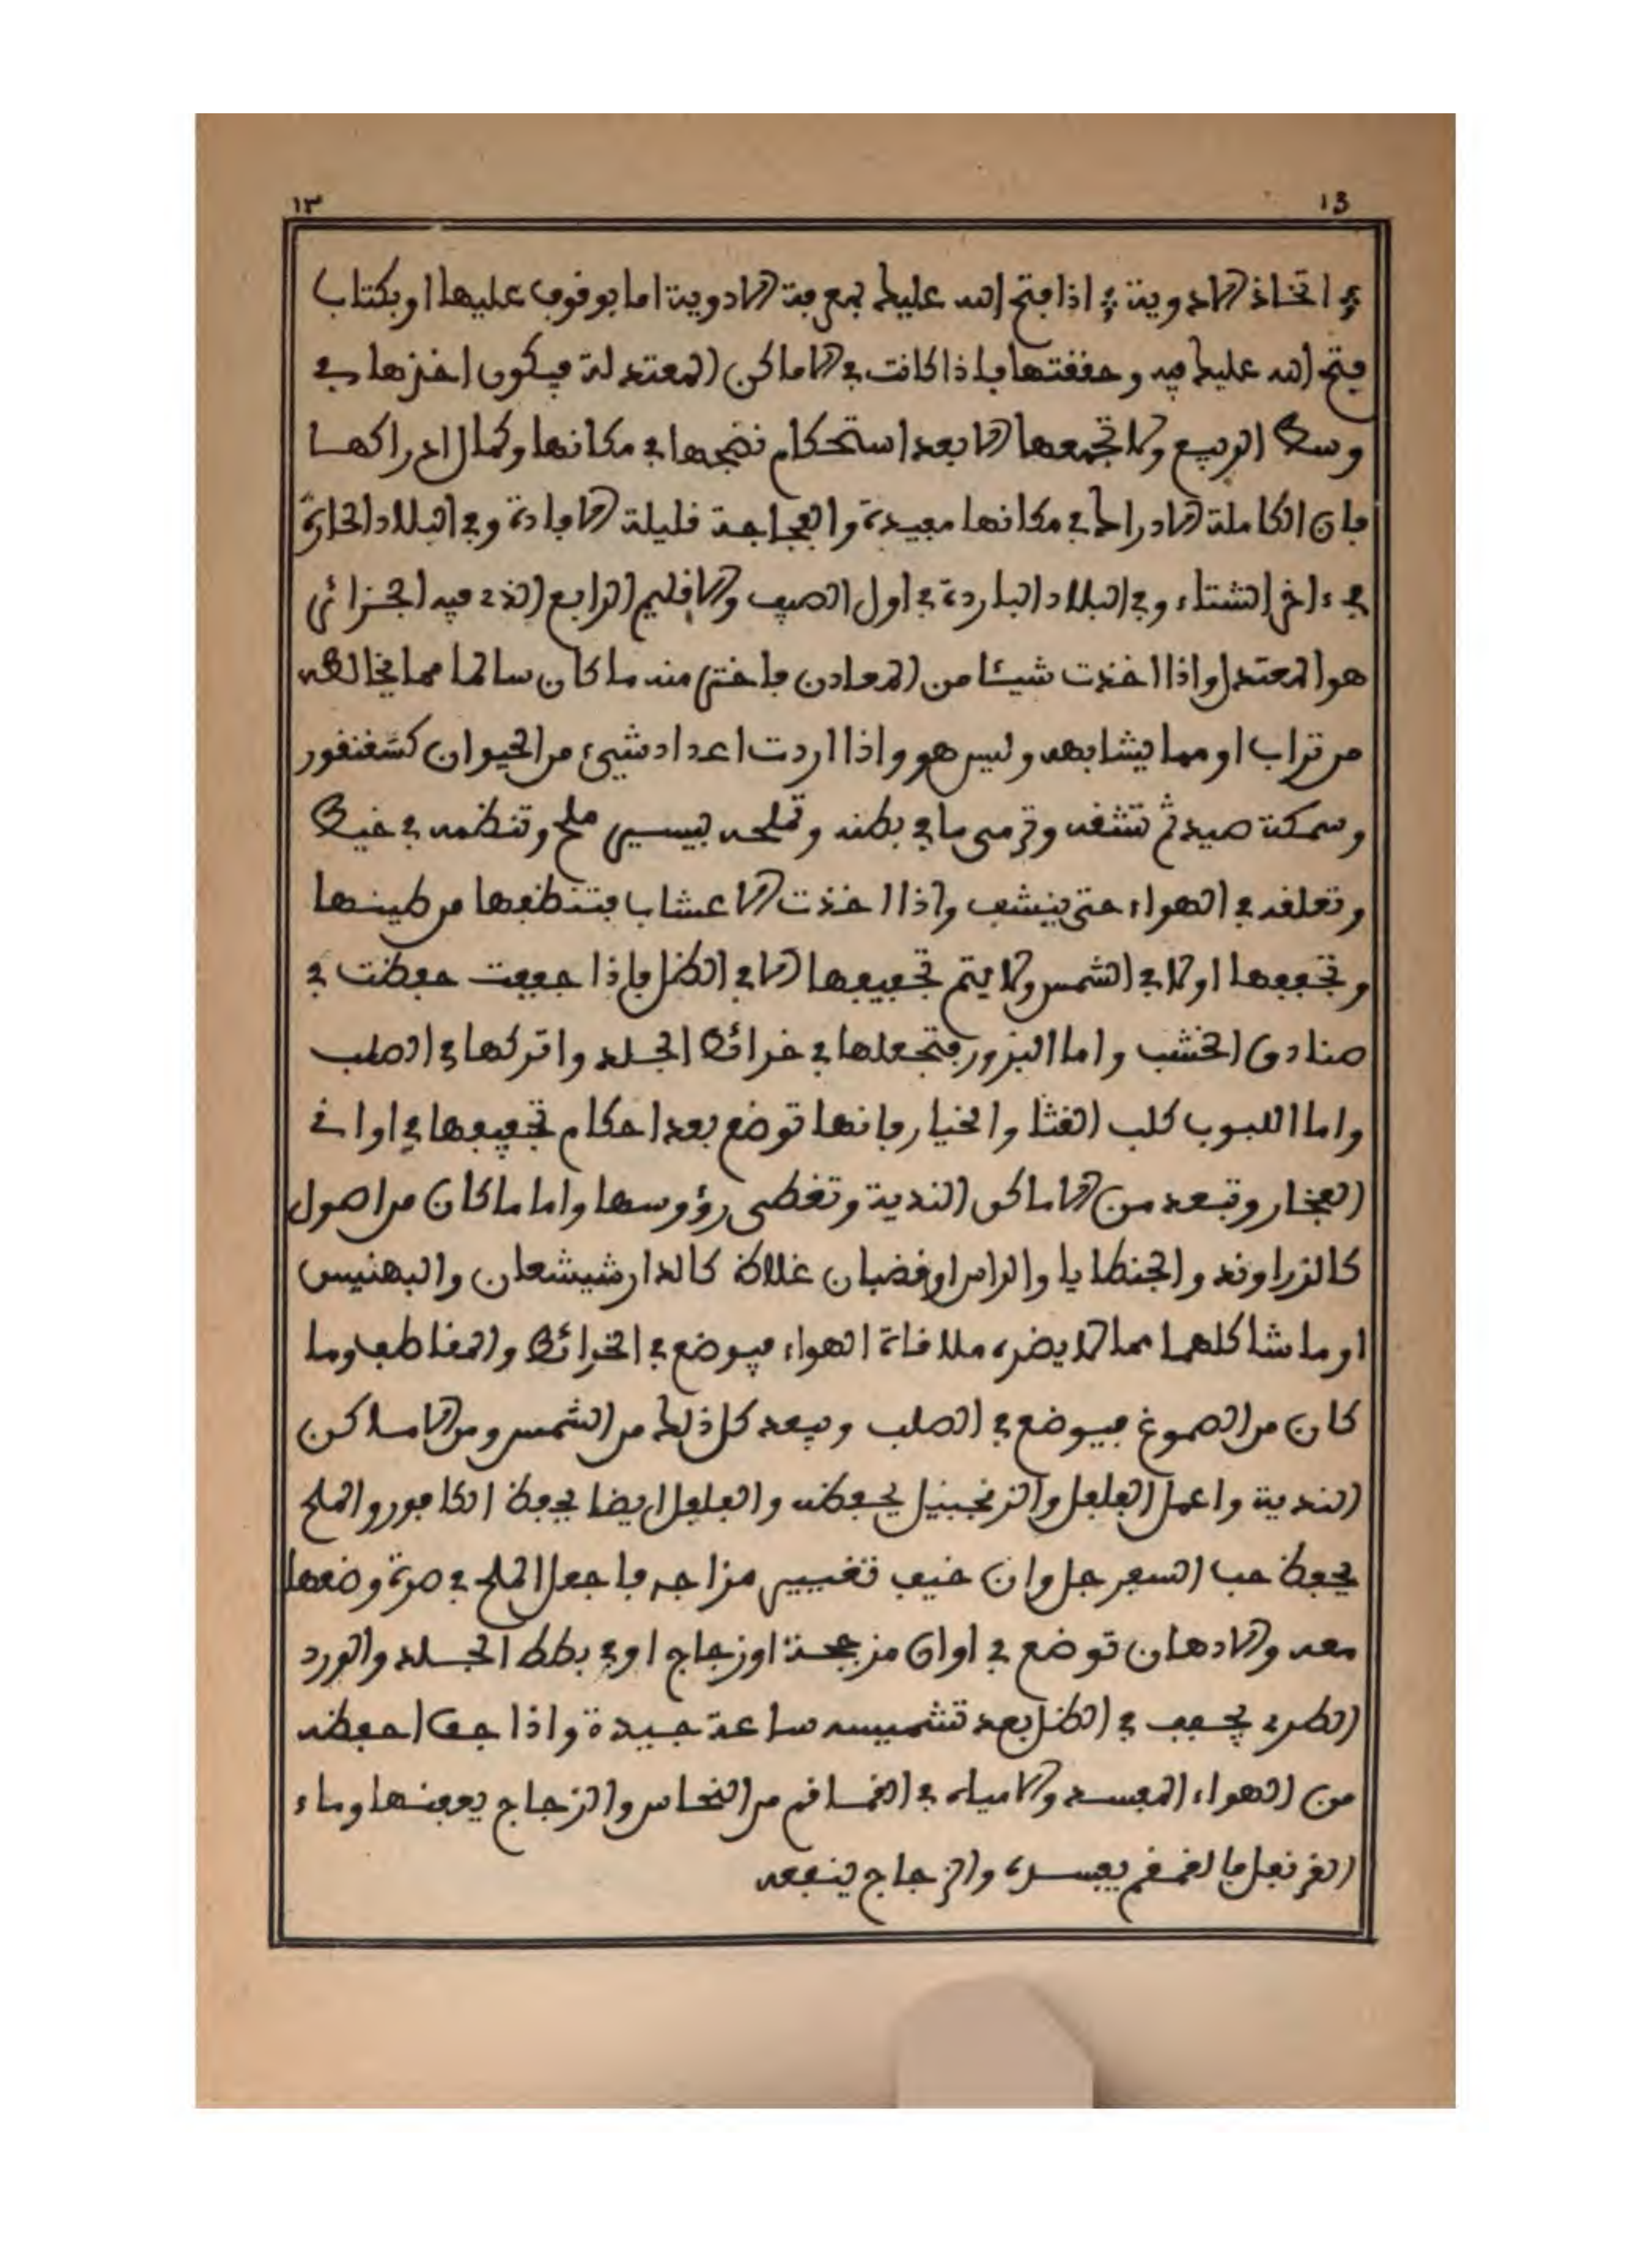 ١٣ 13
في اتخاذ الادوية ؛ اذا فتح الله عليك بمعرفة الادوية اما بوقوف عليها او بكتاب
فتح الله عليك فيه وحققتها فاذا كانت في الاماكن المعتدلة فيكون اخذها في
وسط الربيع ولا تجمعها الا بعد استحكام نضجها في مكانها وكمال ادراكها
فان الكاملة الادراك في مكانها مفيدة والفجاجة قليلة الافادة وفي البلاد الحارة
في ءاخر الشتاء وفي البلاد الباردة في اول الصيف والاقليم الرابع الذي فيه الجزائر
هو المعتدل واذا اخذت شيئا من المعادن فاختر منه ما كان سالما مما يخالطه
من تراب او مما يشابهه وليس هو واذا اردت اعداد شيء من الحيوان كسقنقور
وسمكة صيد ثم تشقه وترمى ما في بطنه وتملحه بيسير ملح وتنظمه في خيط
وتعلقه في الهواء حتى ينشف واذا اخذت الاعشاب فتنظفها من طينها
وتجففها اولا في الشمس ولا يتم تجفيفها الا في الظل فاذا جففت حفظت في
صنادق الخشب واما البزور فتجعلها في خرائط الجلد واتركها في الصلب
واما اللبوب كلب القثا والخيار فانها توضع بعد احكام تجفيفها في اوانى
الفخار وتبعد من الاماكن الندية وتغطى رؤوسها واما ما كان من اصول
كالزراوند والجنطايا والراس او قضبان غلاظ كالدارشيشعان والبهنيس
او ما شاكلهما مما لا يضره ملاقاة الهواء فيوضع في الخرائط والمقاطف وما
كان من الصموغ فيوضع في الصلب ويبعد كل ذلك من الشمس ومن الاماكن
الندية واعمل الفلفل والزنجبيل يحفظه والفلفل ايضا يحفظ الكافور والملح
يحفظ حب السفرجل وان خيف تغيير مزاجه فاجعل الملح في صرة وضعها
معه والادهان توضع في اوان مزججة او زجاج او في بطط الجلد والورد
الطري يجفف في الظل بعد تشميسه ساعة جيدة واذا جف احفظه
من الهواء المفسد والامياه في القماقم من النحاس والزجاج يعفنها وماء
القرنفل فالقمقم يفسده والزجاج ينفعه